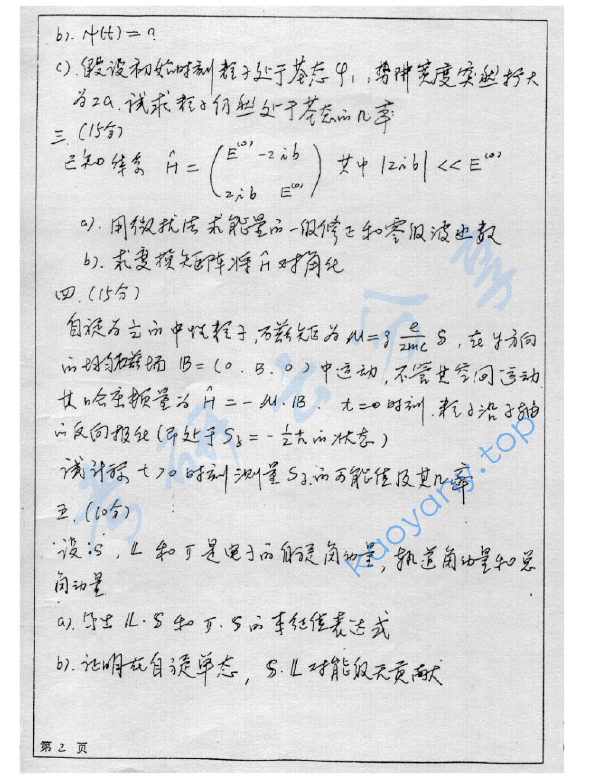 b). ψ(t) = ?
c). 假设初始时刻粒子处于基态 φ₁, 势阱宽度突然扩大
为2a. 试求粒子仍然处于基态的几率
三. (15分)
已知体系 Ĥ = ( E⁽⁰⁾ -2ib ; 2ib E⁽⁰⁾ ) 其中 |2ib| << E⁽⁰⁾
a). 用微扰法求能量的一级修正和零级波函数
b). 求变换矩阵将Ĥ对角化
四. (15分)
自旋为½的中性粒子, 磁矩为 μ = g e/2mc S, 在y方向
的均匀磁场 B = (0, B, 0) 中运动, 不管其空间运动
其哈密顿量为 Ĥ = -μ·B. t=0时刻, 粒子沿z轴
的反向极化 (即处于 S₃ = -½ħ 的状态)
试计算 t>0 时刻测量 S₃ 的可能值及其几率
五. (10分)
设: S, L 和 J 是电子的自旋角动量, 轨道角动量和总
角动量
a). 写出 L·S 和 J·S 的本征值表达式
b). 证明在自旋单态, S·L 对能级无贡献
第 2 页
kaoyany.top